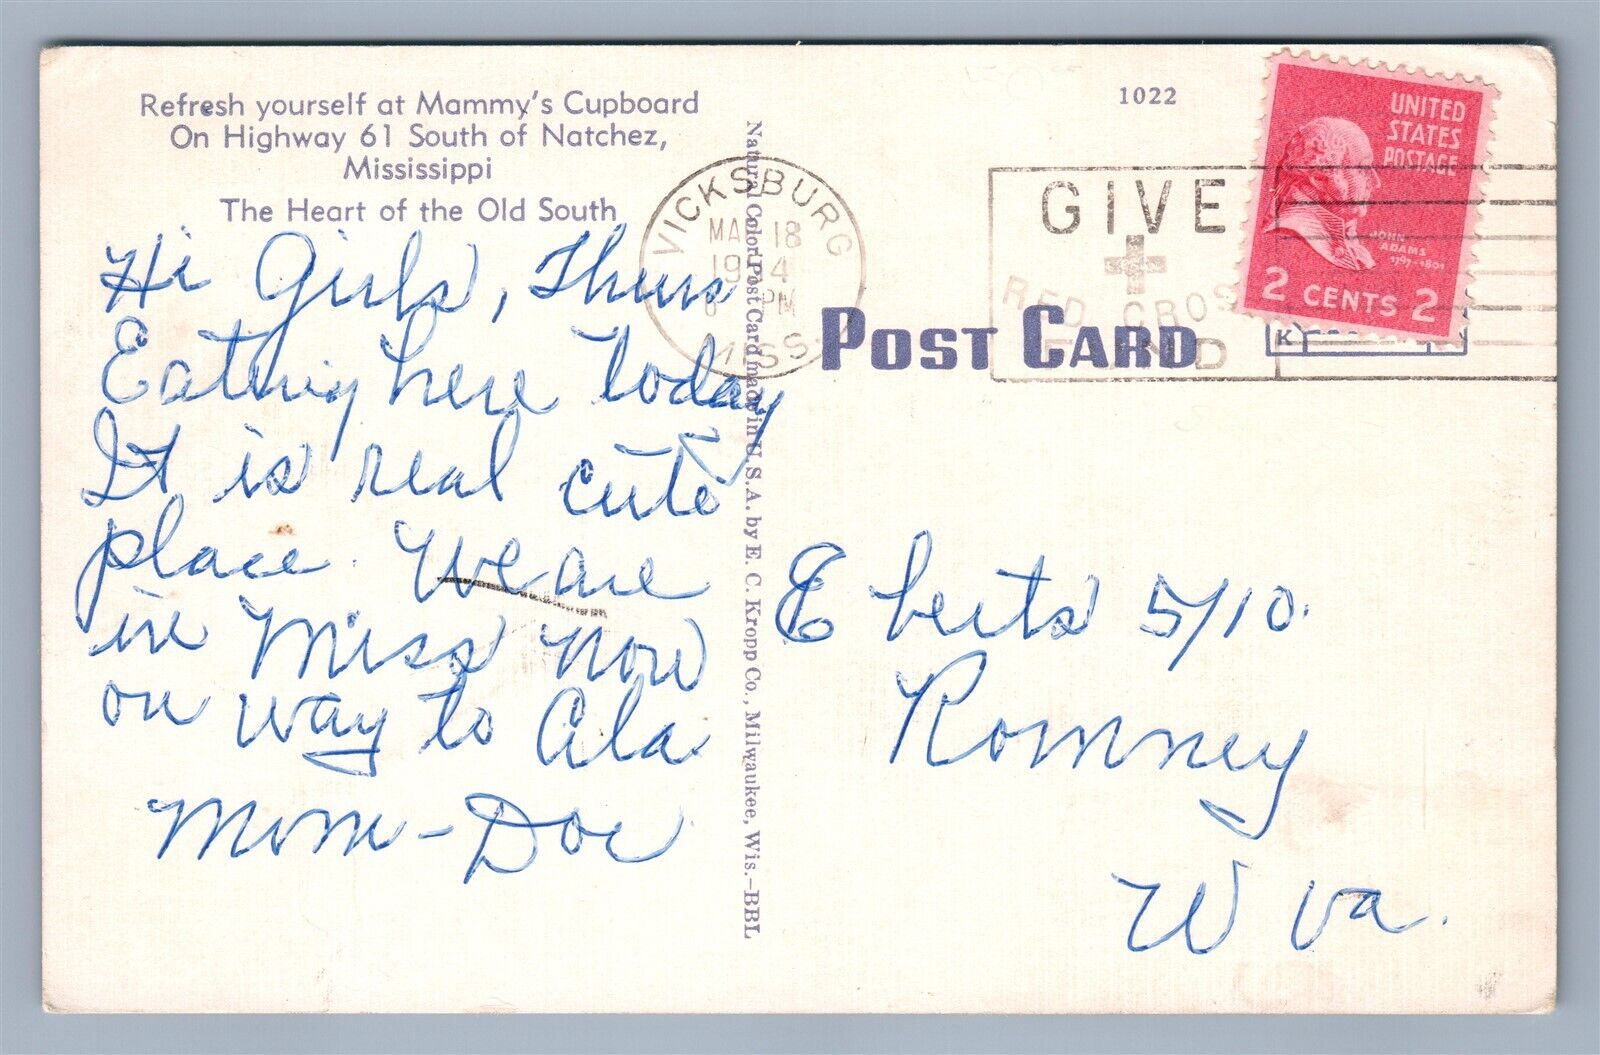 Refresh yourself at Mammy's Cupboard
On Highway 61 South of Natchez,
Mississippi
The Heart of the Old South
Hi Girls, Thurs
Eating here today
It is real cute
place. We are
in Miss now
on way to Ala.
Mom - Doc
Natural Color Post Card made in U.S.A. by E. C. Kropp Co., Milwaukee, Wis.-BBL
VICKSBURG
18
PM
MISS
1022
GIVE
RED CROSS
FUND
UNITED
STATES
POSTAGE
JOHN
ADAMS
1797-1801
2 CENTS 2
POST CARD
K
Eberts 5/10.
Romney
W Va.